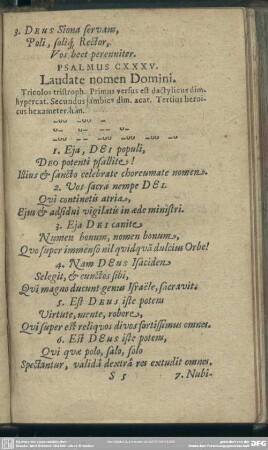 3. DEUS Siona servam,
Poli, soliq; Rector,
Vos beet perenniter.
PSALMUS CXXXV.
Laudate nomen Domini.
Tricolos tristroph. Primus versus est dactylicus dim.
hypercat. Secundus jambic9 dim. acat. Tertius heroi-
cus hexameter.
1. Eja, DEI populi,
DEO potenti psallite!
Illius & sancto celebrate choreumate nomen.
2. Vos sacra nempe DEI.
Qui continetis atria,
Ejus & adsidui vigilatis in æde ministri.
3. Eja DEI canite
Numen bonum, nomen bonum,
Quo super immenso nil qvidqvā dulcius Orbe!
4. Nam DEUS Isaciden
Selegit, & cunctos sibi,
Qui magno ducunt genus Israële, sacravit.
5. Est DEUS iste potens
Virtute, mente, robore,
Qui super est reliqvos divos fortissimus omnes.
6. Est DEUS iste, potens,
Qui quæ polo, salo, solo
Spectantur, validâ dextrâ res extudit omnes.
S 5
7. Nubi-